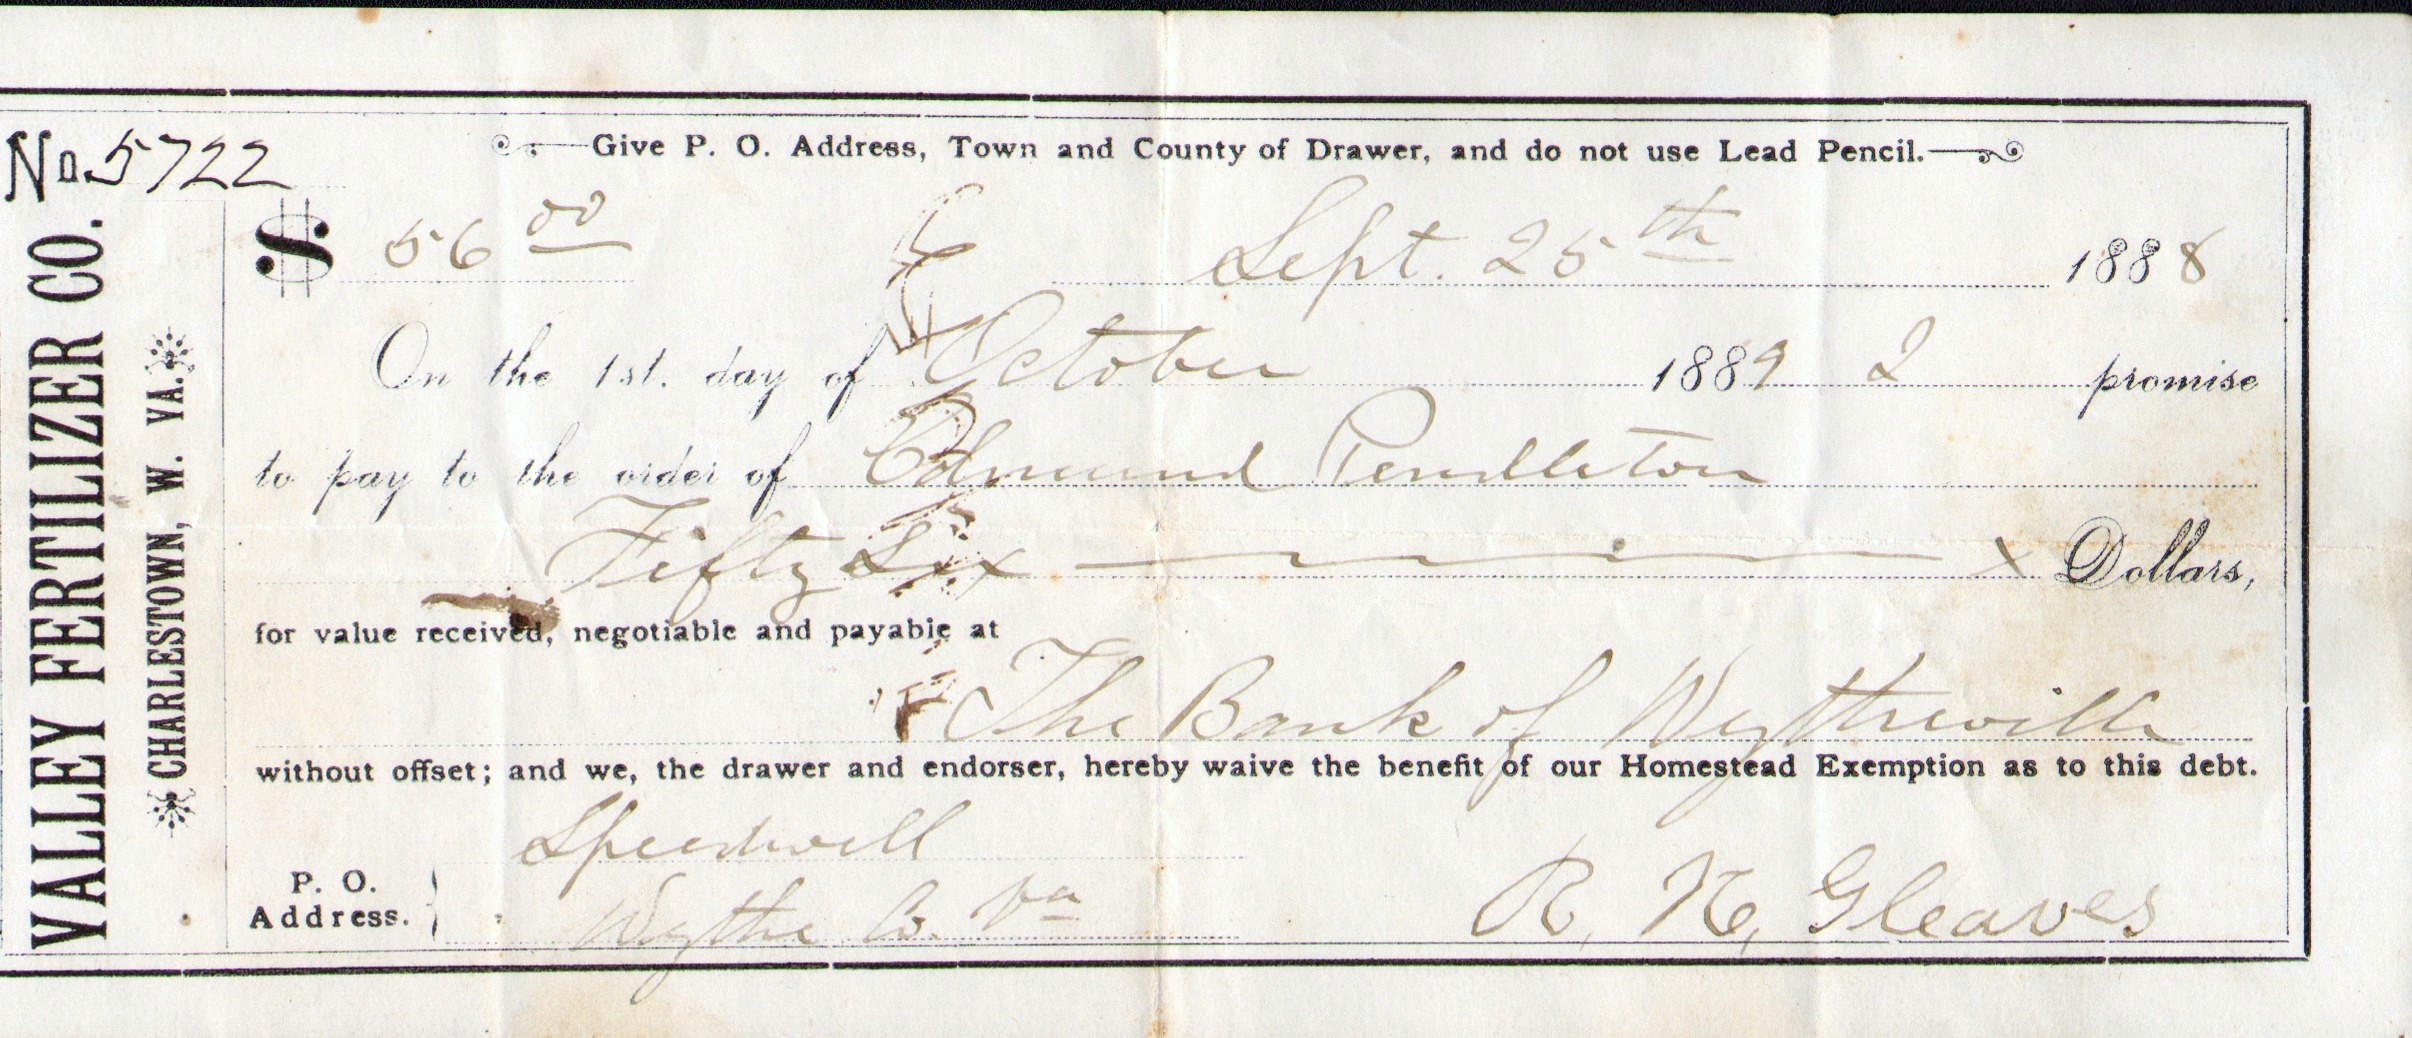 VALLEY FERTILIZER CO.
CHARLESTOWN, W. VA.
No. 5722
Give P. O. Address, Town and County of Drawer, and do not use Lead Pencil.
$ 56 00 Sept. 25th 1888
On the 1st. day of October 1889 2 promise
to pay to the order of Edmund Pendleton
Fifty Six x Dollars,
for value received, negotiable and payable at
The Bank of Wytheville
without offset; and we, the drawer and endorser, hereby waive the benefit of our Homestead Exemption as to this debt.
Speedwell
P. O. Address. Wythe Co. Va
R. K. Gleaves